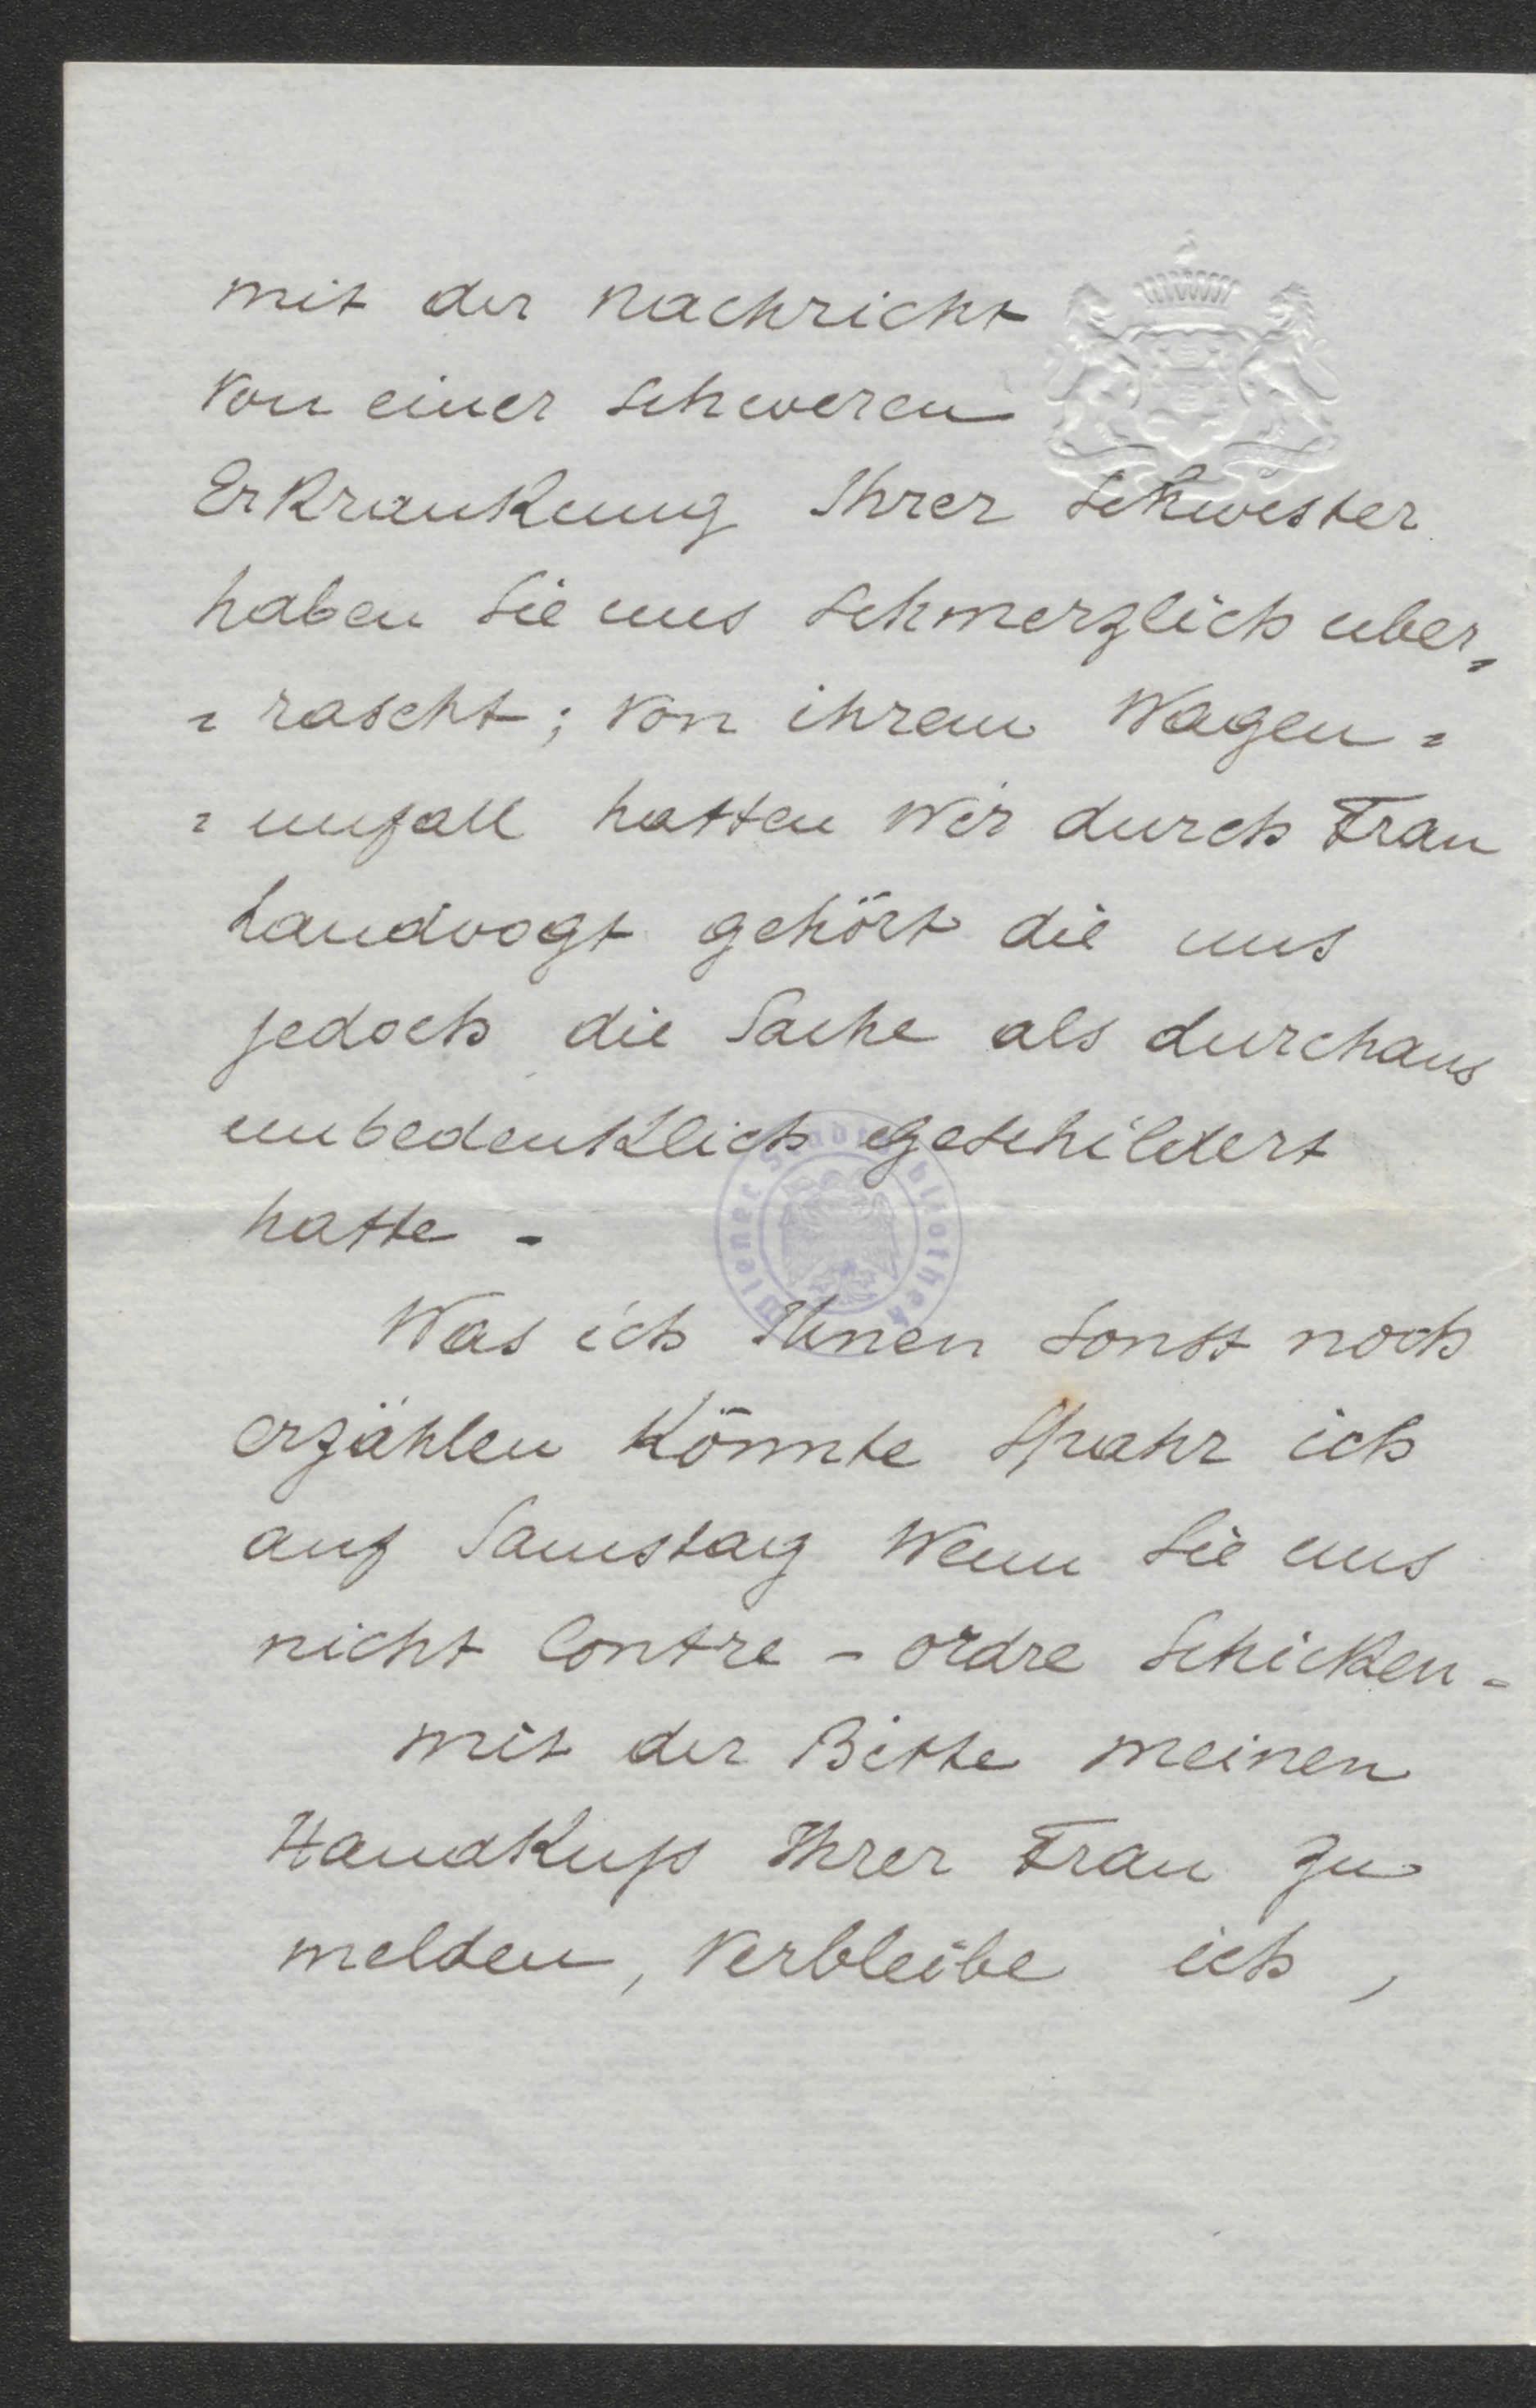 mit der Nachricht
von einer schweren
Erkrankung Ihrer Schwester
haben Sie uns schmerzlich über=
= rascht; von ihrem Wagen =
= unfall hatten wir durch Frau
Landvogt gehört die uns
jedoch die Sache als durchaus
unbedenklich geschildert
hatte -
Wiener Stadtbibliothek
Was ich Ihnen sonst noch
erzählen könnte spahr ich
auf Samstag wenn Sie uns
nicht Contre - ordre schicken -
mit der Bitte meinen
Handkuss Ihrer Frau zu
melden, verbleibe ich,